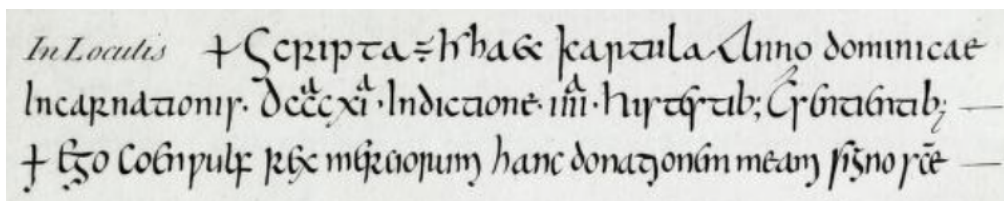 In Loculis + Scripta ÷ hhaec kartula Anno dominicae
Incarnationis. Dcccᵃxiᵃ. Indictione. iiiiᵃ. his testib; C̄sentientib;
+ Ego Coenƿulf rex merciorum hanc donationem meam signo sc̄e